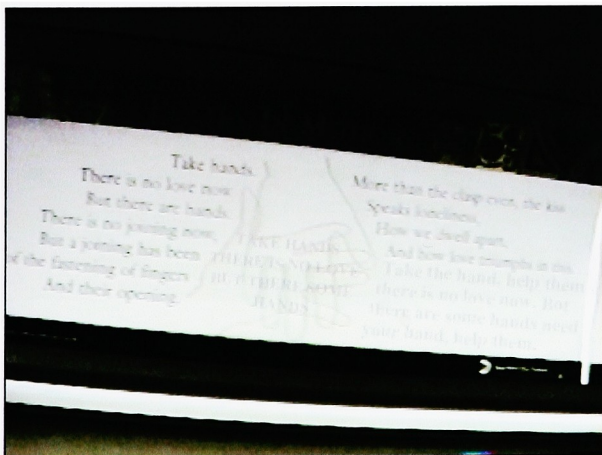 Take hands.
There is no love now.
But there are hands.
There is no joining now,
But a joining has been
of the fastening of fingers
And their opening.
TAKE HANDS
THERE IS NO LOVE
BUT THERE SOME
HANDS
More than the clasp even, the kiss
Speaks loneliness,
How we dwell apart,
And how love triumphs in this.
Take the hand, help them
there is no love now. But
there are some hands need
your hand, help them.